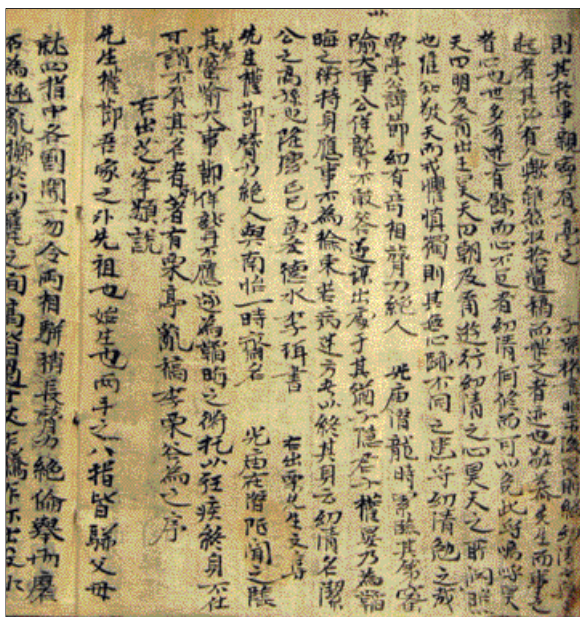 則其於事親寧有
起者其 有人歟雖然收拾遺稿而 之者迹也敬養先生而事之
者心也世多有迹有餘而心不足者幼清何修而可以免此乎嗚呼昊
天曰明及爾出王昊天曰朝及爾遊行幼清之心昊天之所洞照
也惟知敬天而戒懼慎獨則其無心跡不同之患乎幼清勉之哉
栗亭公諱節幼有奇相膂力絕人 光廟潛龍時累臨其第密
喻大事公佯聾不敢答 謀出處于其猶子隱君子權晏乃為韜
晦之術持身應事不為檢束若病迷 者以終其身云幼清名潔
公之高孫也隆慶己巳夏德水李珥書 右出 先生文集
先生權節膂力絕人與南怡一時齊名 光廟在潛邸聞之臨
其第密喻大事節佯聾不應遂為韜晦之術托以狂疾終身不仕
可謂不負其名者著有栗亭亂稿李栗谷為之序
右出芝峯類說
先生權節吾家之外先祖也始生也兩手之八指皆聯父母
就四指中各割開一勿令兩相聯稍長膂力絕倫舉